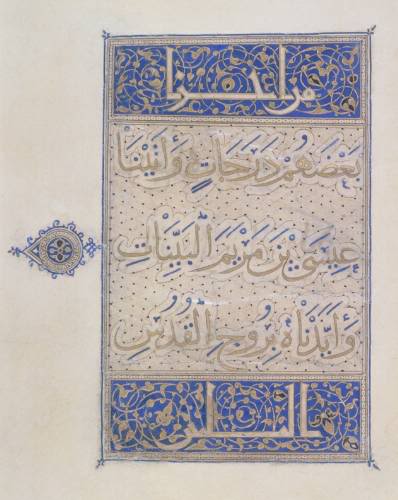 من اجزا
بَعْضَهُمْ دَرَجَاتٍ وَآتَيْنَا
عِيسَى بْنَ مَرْيَمَ الْبَيِّنَاتِ
وَأَيَّدْنَاهُ بِرُوحِ الْقُدُسِ